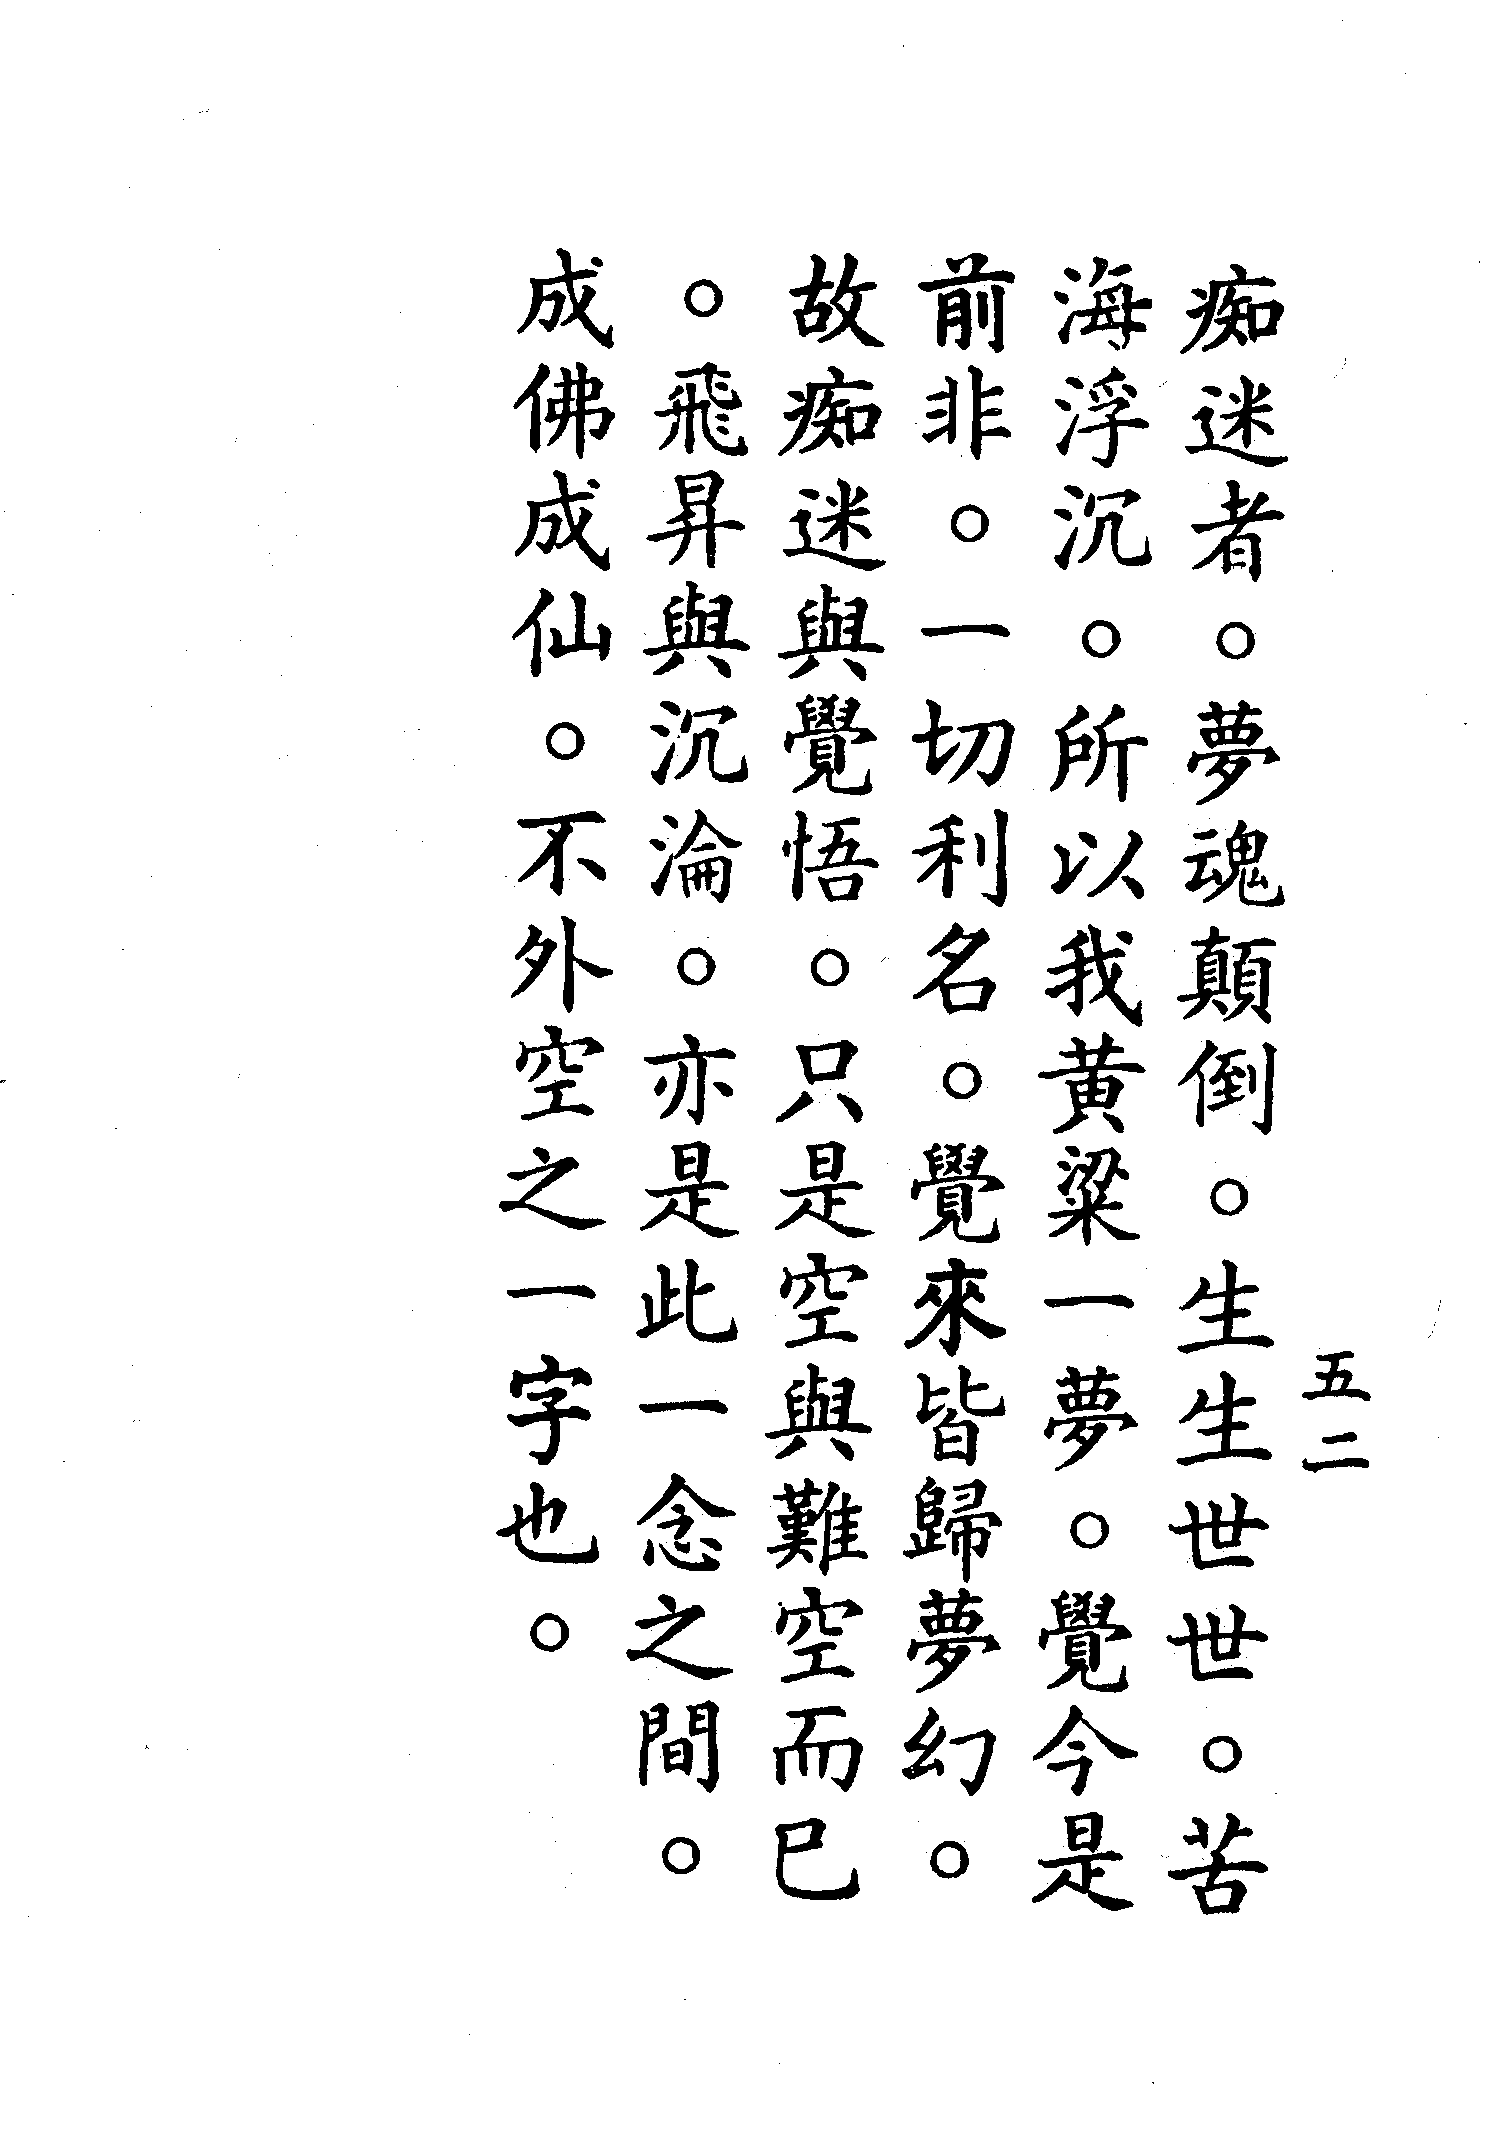 五二
痴迷者。夢魂顛倒。生生世世。苦
海浮沉。所以我黄粱一夢。覺今是
前非。一切利名。覺來皆歸夢幻。
故痴迷與覺悟。只是空與難空而已
。飛昇與沉淪。亦是此一念之間。
成佛成仙。不外空之一字也。